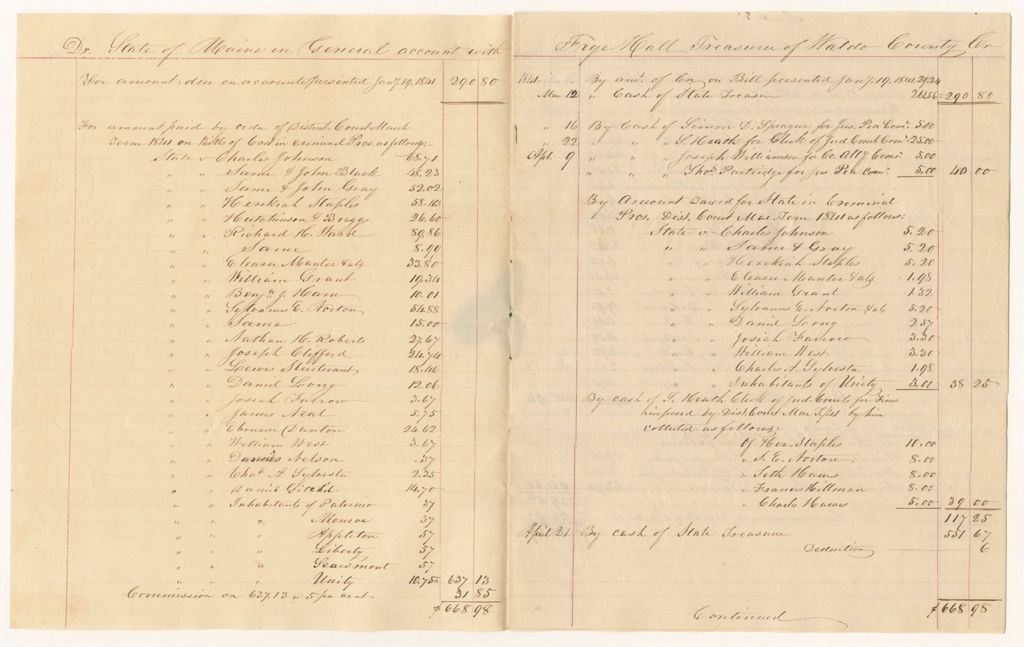 Dr. State of Maine in General account with
For amount due on account presented Jany. 19, 1841 290 80
For amount paid by order of District Court March
Term 1841 on Bills of Cost in criminal Pros. as follows:
State v Charles Johnson 68.71
" " Same & John Black 48.23
" " Same & John Gray 52.02
" " Hezekiah Staples
" " Hutchinson & Briggs 26.60
" " Richard H. Ward 89.86
" " Same 8.99
" " Eleazer Mantee & als 33.80
" " William Grant 19.34
" " Benj. J. Ham 10.01
" " Sylvanus E. Norton 54.88
" " Same 15.00
" " Nathan H. Roberts 27.67
" " Joseph Clifford 24.74
" " Lewis 18.46
" " Daniel Loong 12.06
" " Josiah Farrow 3.67
" " James Neal 5.75
" " Ebenezer Dunton 24.62
" " William West 3.67
" " Nelson .37
" " Chas. A Sylvester 2.35
" " 14.70
" " Inhabitants of Palermo 37
" " " Monroe 37
" " " Appleton 57
" " " Liberty 57
" " " Searsmont 57
" " " Unity 10.75 637 13
Commission on 637.13 a 5 per cent. 31 85
$668 98
Frye Hall Treasurer of Waldo County Cr
1841. By amt. of Cr. on Bill presented Jany. 19, 1841, 29.24
Mar 12 " Cash of State Treasurer 261.56 290 80
" 16 By Cash of Simon D. Sprague for Jus. Pea Com. 5.00
" 22 " " " J. Heath for Clerk of Jud Court Com. 25.00
Apl. 9 " " " Joseph Williamson for Co. Atty Coms. 5.00
" " " " Thos. Partridge for jus Pea Com. 5.00 40 00
By Amount Saved for State in Criminal
Pros. Dist. Court Mar. Term 1841 as follows:
State v Charles Johnson 5.20
" " Same & Gray 5.20
" " Hezekiah Staples 5.20
Eleazer Mantee & als 1.98
William Grant 1.32
" Sylvanus E. Norton & als 5.20
" " Daniel Loong 2.57
" " Josiah Farrow 3.30
" " William West 3.30
" " Charles A. Sylvester 1.98
" " Inhabitants of Unity 3.00 38 25
By cash of J. Heath Clerk of Jud. Courts for Fines
imposed by Dist. Court Mar T. 1841 by him
collected as follows:
Of Hez. Staples 10.00
" S. E. Norton 8.00
" Seth Hawes 8.00
" Francis Hillman 8.00
" Charles Hawes 5.00 39 00
117 25
April 21 By cash of State Treasurer 551 67
Deduction 6
$668 98
Continued